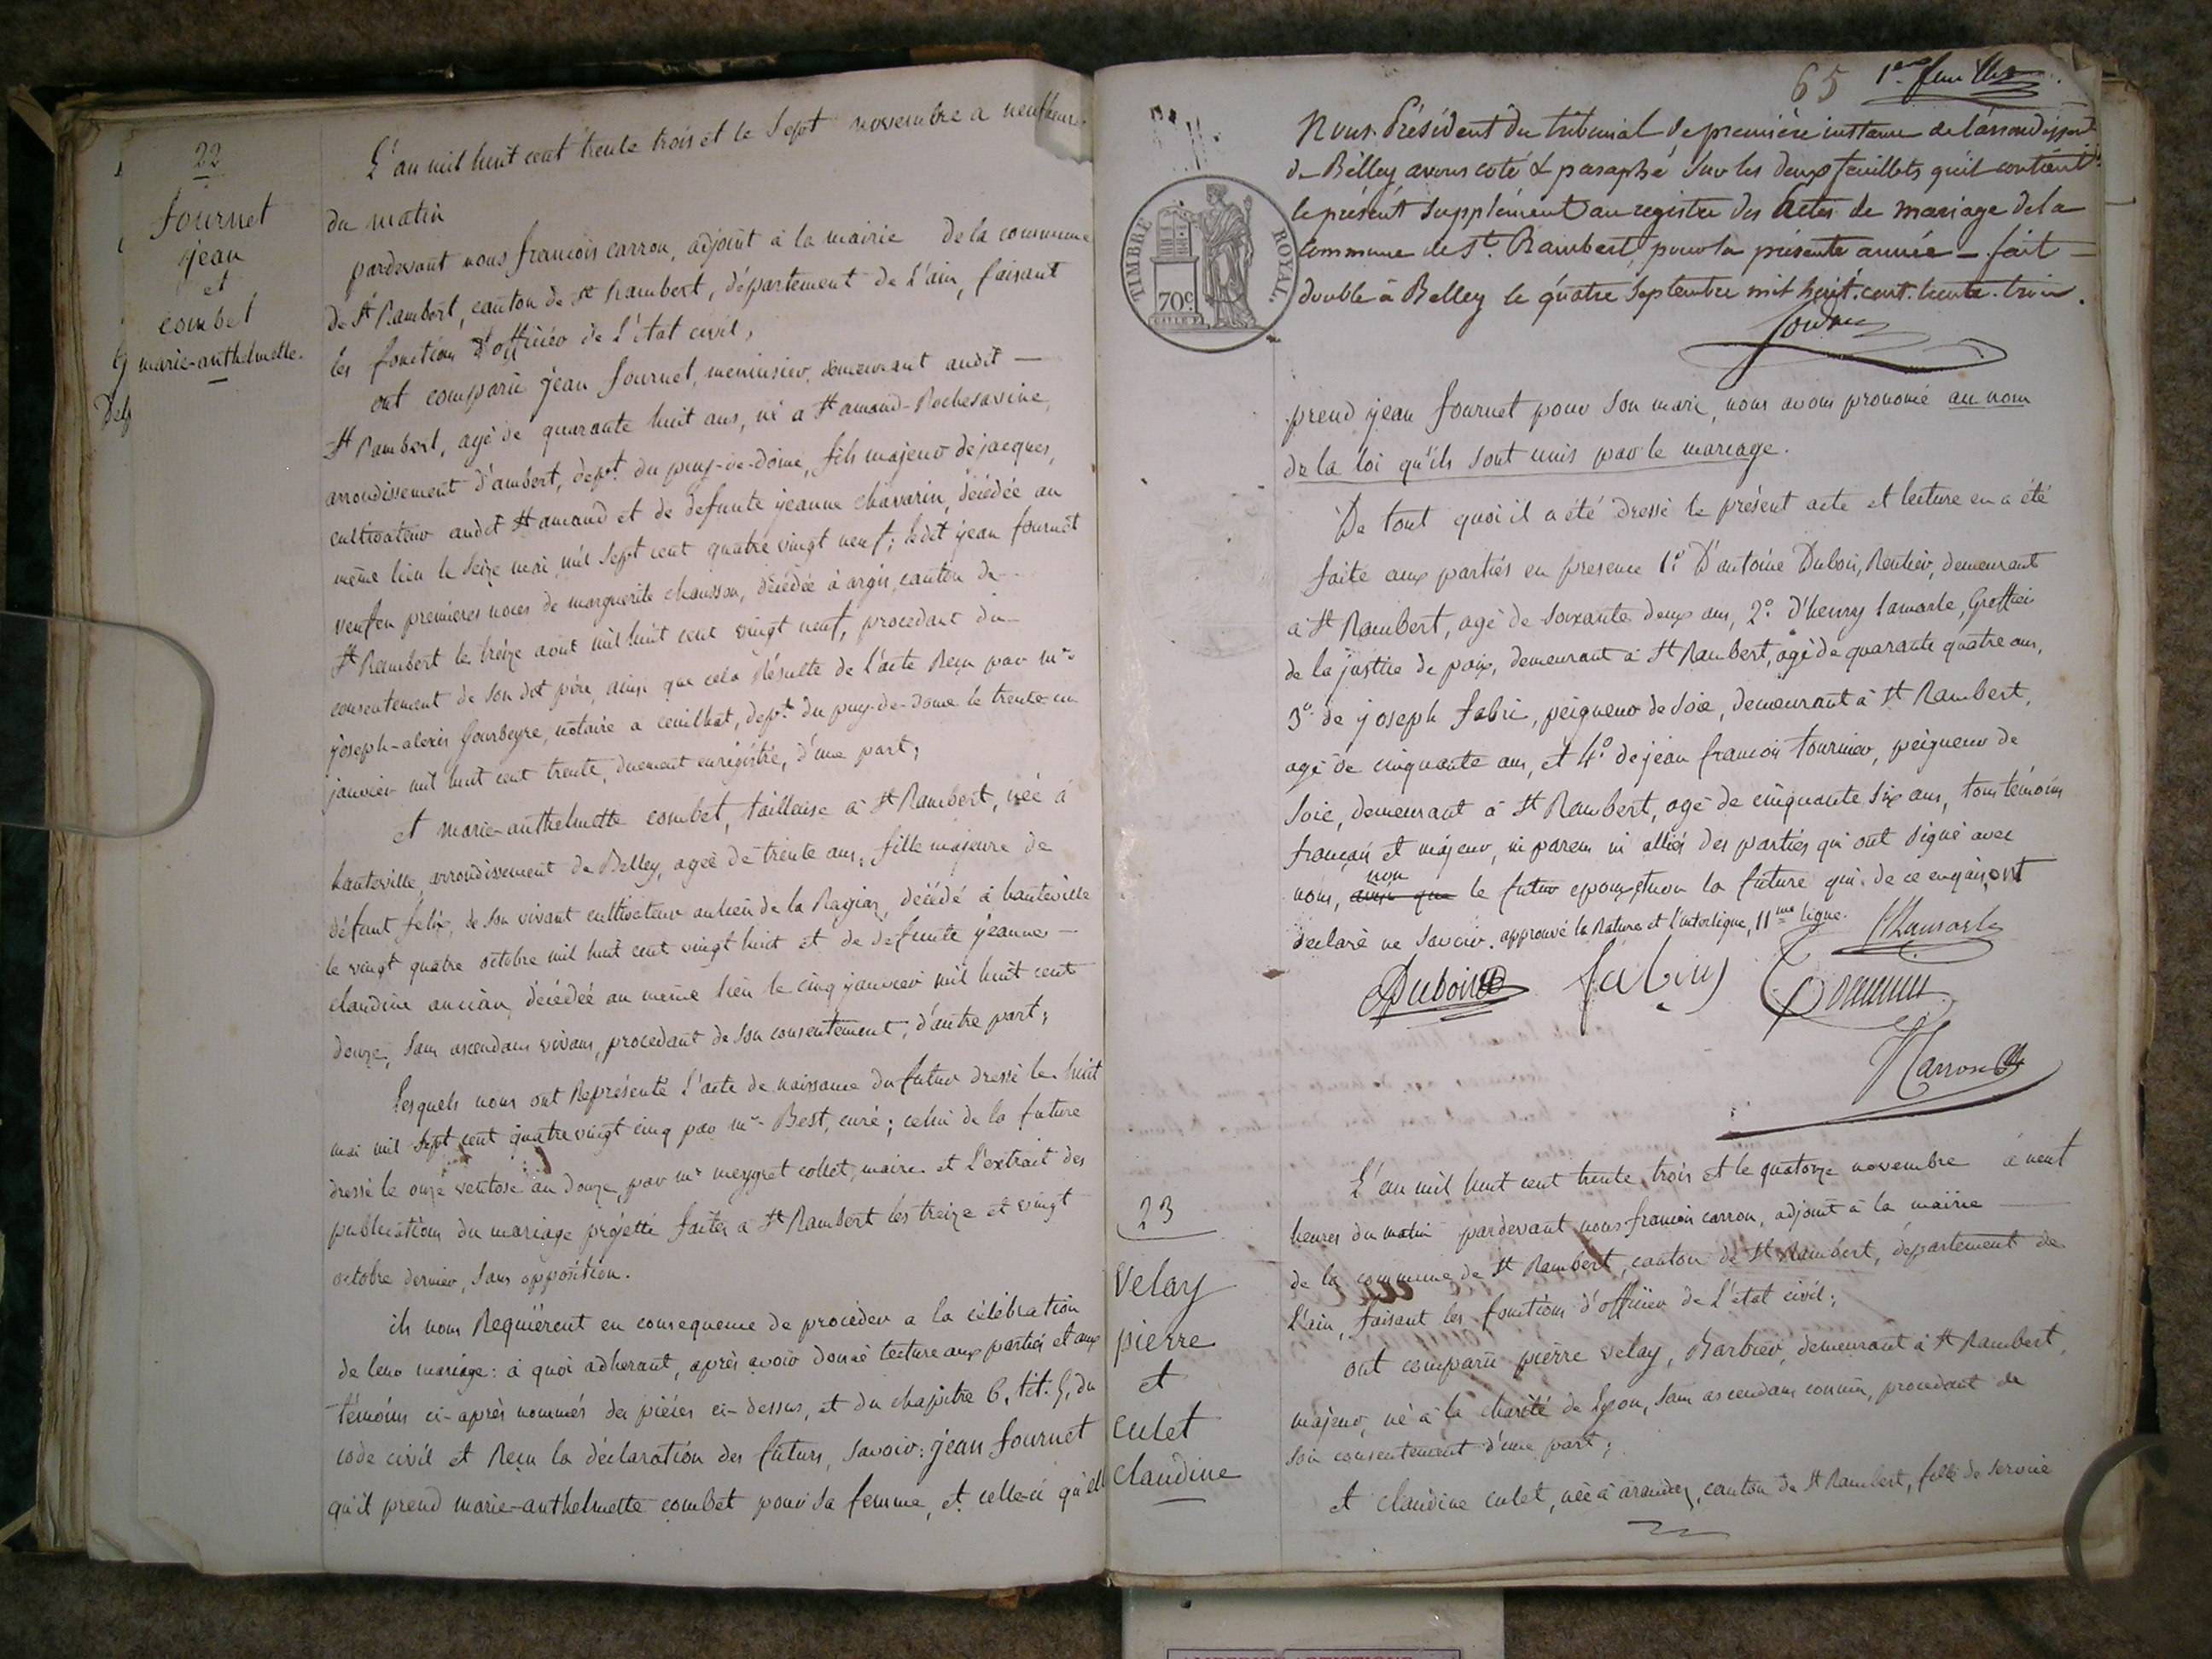 22
fournet
jean
et
combet
marie-anthelmette.
L'an mil huit cent trente trois et le sept novembre a neuf heures
du matin
pardevant nous francois carron, adjoint à la mairie de la commune
de St Rambert, canton de St Rambert, département de L'ain, faisant
les fonctions d'officier de L'état civil,
ont comparu jean fournet, menuisier, demeurant audit —
St Rambert, agé de quarante huit ans, né a St amand-Rochesavine,
arrondissement d'ambert, dept. du puy-de-dome, fils majeur de jacques,
cultivateur audit St amand et de defunte jeanne chavarin, décédée au
même lieu le seize mai mil sept cent quatre vingt neuf; ledit jean fournet
veuf en premieres noces de marguerite chausson, décédée à argis, canton de
St Rambert le treize aout mil huit cent vingt neuf, procedant du
consentement de son dit père, ainsi que cela Résulte de l'acte Reçu par mre
joseph-alexis Gourbeyre, notaire a cunlhat, dept. du puy-de-dome le trente un
janvier mil huit cent trente, duement enrégistré, d'une part;
et marie-anthelmette combet, tailleuse à St Rambert, née à
hauteville, arrondissement de Belley, ageé de trente ans, fille majeure de
défunt felix, de son vivant cultivateur au lieu de la Ragiaz, décédé à hauteville
le vingt quatre octobre mil huit cent vingt huit et de defunte jeanne —
claudine ancian, décédeé au même lieu le cinq janvier mil huit cent
douze, sans ascendans vivans, procedant de son consentement, d'autre part;
Lesquels nous ont Représenté L'acte de naissance du futur dressé le huit
mai mil sept cent quatre vingt cinq par mr Best, curé; celui de la future
dressé le onze ventose an douze par mr meygret collet, maire et L'extrait des
publications du mariage projetté faites a St Rambert les treize et vingt
octobre dernier, sans opposition.
ils nous Requièrent en consequence de procéder a la célébration
de leur mariage: à quoi adherant, après avoir donné lecture aux parties et aux
témoins ci-après nommés des pièces ci-dessus, et du chapitre 6, tit. 5, du
code civil et Reçu la déclaration des futurs, savoir: jean fournet
qu'il prend marie-anthelmette combet pour sa femme, et celle-ci qu'elle
65 1er feuillet
Nous Président du tribunal de première instance de l'arrondissement
de Belley avons coté & paraphé sur les deux feuillets qu'il contient
le présent supplément au registre des Actes de mariage de la
commune de St. Rambert, pour la présente année — fait —
double à Belley le quatre septembre mil huit cent trente trois.
TIMBRE ROYAL.
70c
prend jean fournet pour son mari, nous avons prononcé au nom
de la loi qu'ils sont unis par le mariage.
De tout quoi il a été dressé le présent acte et lecture en a été
faite aux parties en presence 1.° D'antoine Dubois, Rentier, demeurant
à St Rambert, agé de soixante deux ans, 2.° d'henry Lamarle, Greffier
de la justice de paix, demeurant à St Rambert, agé de quarante quatre ans,
3.° de joseph fabri, peigneur de soie, demeurant à St Rambert,
agé de cinquante ans, et 4.° de jean francois tournier, peigneur de
soie, demeurant à St Rambert, agé de cinquante six ans, tous témoins
francais et majeur, ni parens ni alliés des parties qui ont signé avec
nous, ainsi que non le futur epoux et non la future qui de ce enquis, ont
declaré ne savoir. approuvé la Rature et l'interligne, 11me ligne. HLamarle
Dubois fabry Tournier
Carron
23
Velay
pierre
et
Culet
Claudine
L'an mil huit cent trente trois et le quatorze novembre à neuf
heures du matin pardevant nous francois carron, adjoint à la mairie —
de la commune de St Rambert, canton de St Rambert, département de
L'ain, faisant les fonctions d'officier de L'état civil;
ont comparu pierre velay, Barbier, demeurant à St Rambert,
majeur, né à la charité de Lyon, sans ascendans connus, procedant de
son consentement d'une part;
et claudine culet, née à arandaz, canton de St Rambert, fille de service